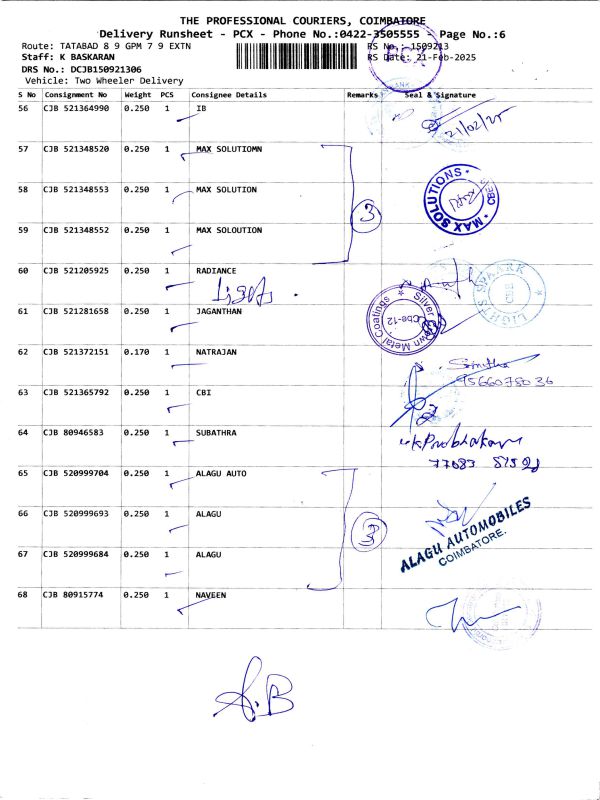 THE PROFESSIONAL COURIERS, COIMBATORE
Delivery Runsheet - PCX - Phone No.:0422-3505555 - Page No.:6
Route: TATABAD 8 9 GPM 7 9 EXTN RS No.: 1509213
Staff: K BASKARAN RS Date: 21-Feb-2025
DRS No.: DCJB150921306
Vehicle: Two Wheeler Delivery
S No Consignment No Weight PCS Consignee Details Remarks Seal & Signature
56 CJB 521364990 0.250 1 IB
21/02/25
57 CJB 521348520 0.250 1 MAX SOLUTIOMN
58 CJB 521348553 0.250 1 MAX SOLUTION
3
MAX SOLUTIONS
59 CJB 521348552 0.250 1 MAX SOLOUTION
60 CJB 521205925 0.250 1 RADIANCE
Lights
LIGHTS SPAARK
61 CJB 521281658 0.250 1 JAGANTHAN
Silver Crown Metal Coatings
Cbe-12
62 CJB 521372151 0.170 1 NATRAJAN
9566075036
63 CJB 521365792 0.250 1 CBI
64 CJB 80946583 0.250 1 SUBATHRA
65 CJB 520999704 0.250 1 ALAGU AUTO
66 CJB 520999693 0.250 1 ALAGU
3
ALAGU AUTOMOBILES
COIMBATORE.
67 CJB 520999684 0.250 1 ALAGU
68 CJB 80915774 0.250 1 NAVEEN
A.B